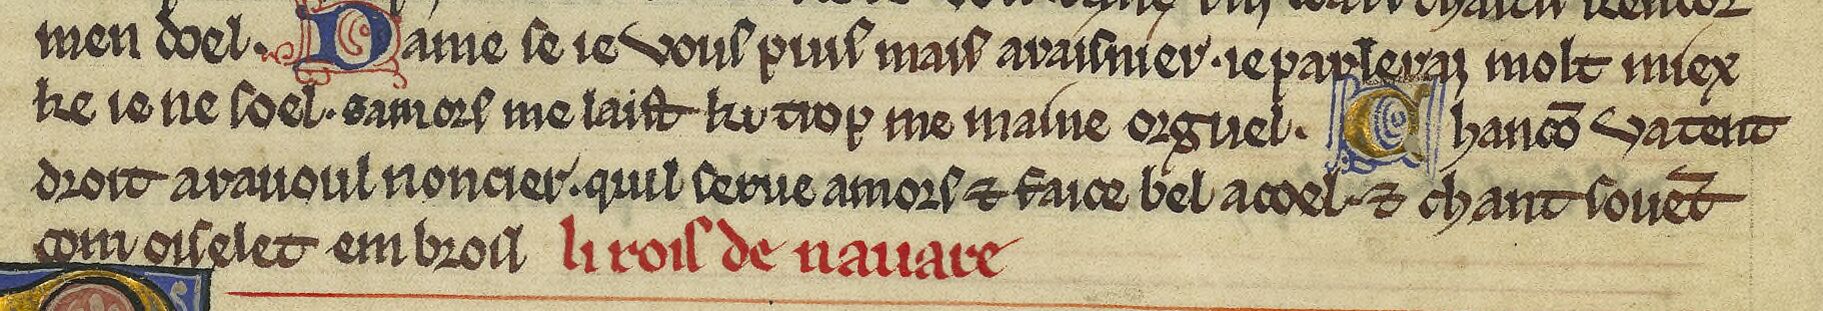 men doel. Dame se ie vous puis mais araisnier. ie parlerai molt miex
ke ie ne soel. samors me laist ki trop me maine orguel. Chancō vatent
droit a rauoul noncier. quil serue amors ⁊ faice bel acoel. ⁊ chant souēt
com oiselet em broil li rois de nauare